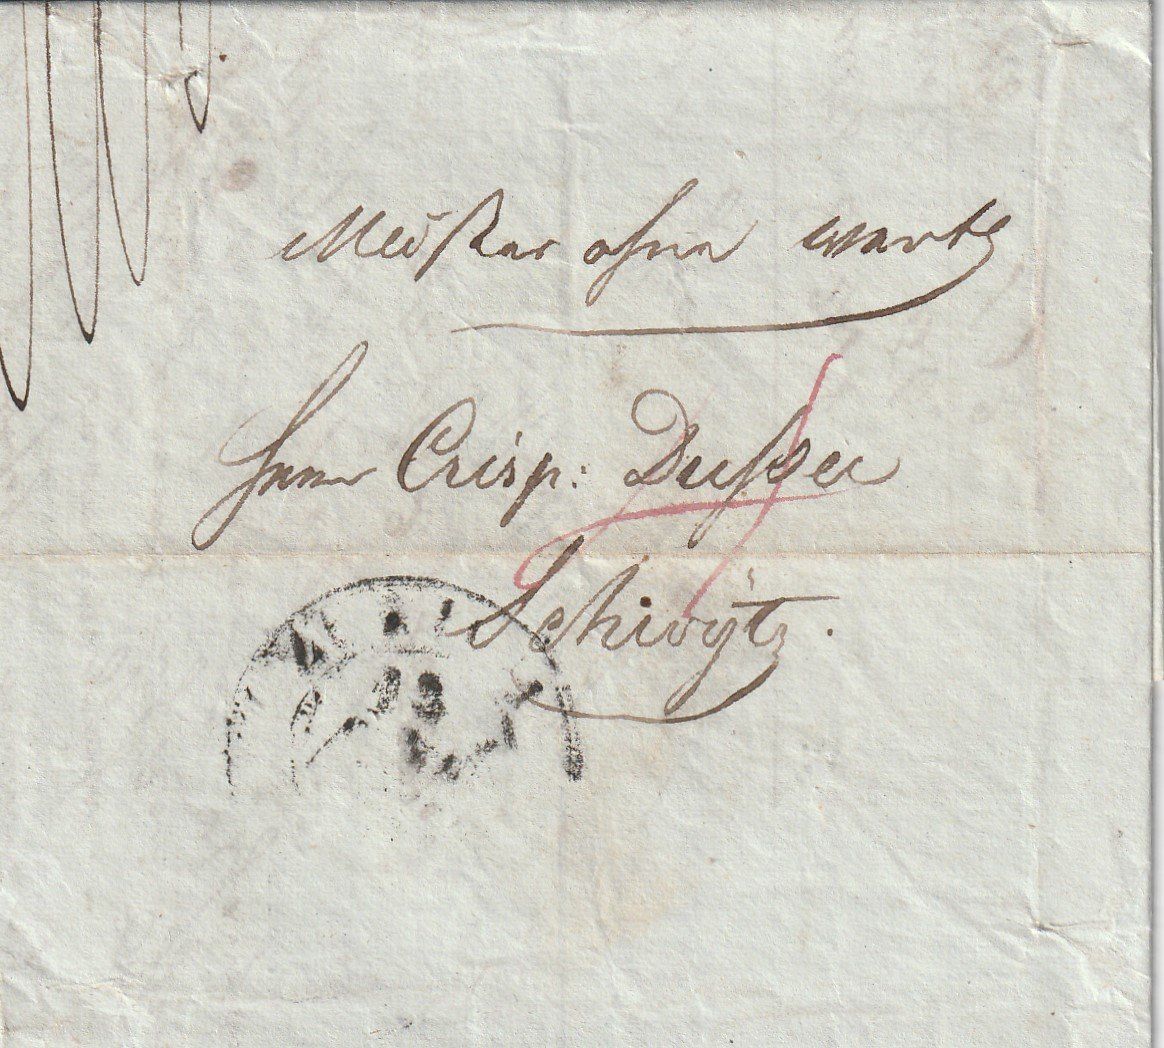 Muster ohne werth
Herrn Crisp: Dusser
Schwÿtz.